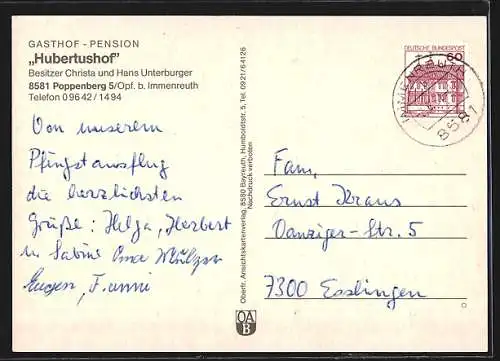 GASTHOF - PENSION
„Hubertushof"
Besitzer Christa und Hans Unterburger
8581 Poppenberg 5/Opf. b. Immenreuth
Telefon 0 96 42 / 14 94
Von unserem
Pfingstausflug
die herzlichsten
Grüße: Helga, Herbert
u. Sabine Oma
Eugen, Fanni
Oberfr. Ansichtskartenverlag, 8580 Bayreuth, Humboldtstr. 5, Tel. 0921/64126
Nachdruck verboten
OA
B
DEUTSCHE BUNDESPOST
60
IMMENREUTH
8581
Fam,
Ernst Kraus
Danziger-Str. 5
7300 Esslingen